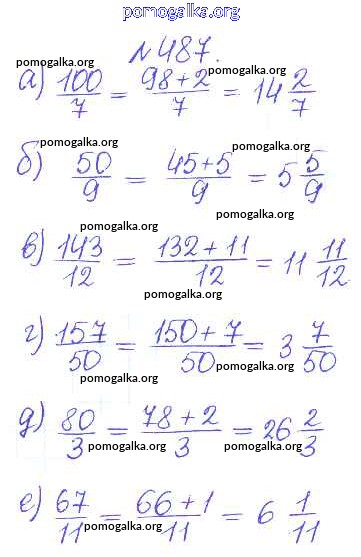 pomogalka.org
№ 487.
pomogalka.org
а) 100/7 = (98+2)/7 = 14 2/7
pomogalka.org
pomogalka.org pomogalka.org
б) 50/9 = (45+5)/9 = 5 5/9
pomogalka.org
в) 143/12 = (132+11)/12 = 11 11/12
pomogalka.org
pomogalka.org
г) 157/50 = (150+7)/50 = 3 7/50
pomogalka.org pomogalka.org
д) 80/3 = (78+2)/3 = 26 2/3
pomogalka.org pomogalka.org
pomogalka.org
е) 67/11 = (66+1)/11 = 6 1/11
pomogalka.org